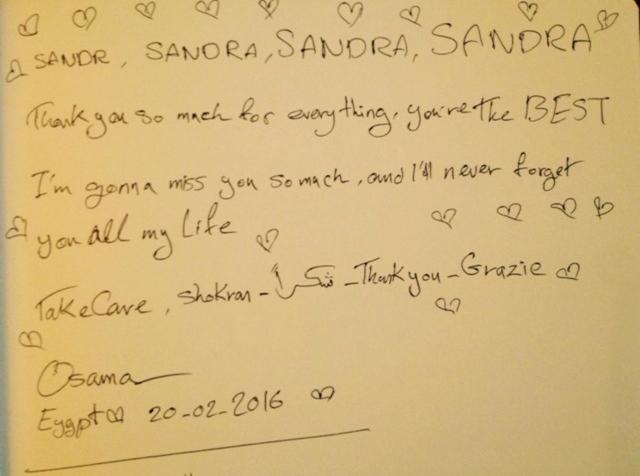 SANDR, SANDRA, SANDRA, SANDRA
Thank you so mach for everything, you're the BEST
I'm gonna miss you so mach, and I'll never forget
you all my Life
Take Care, Shokran - شكراً - Thank you - Grazie
Osama
Eygpt 20-02-2016